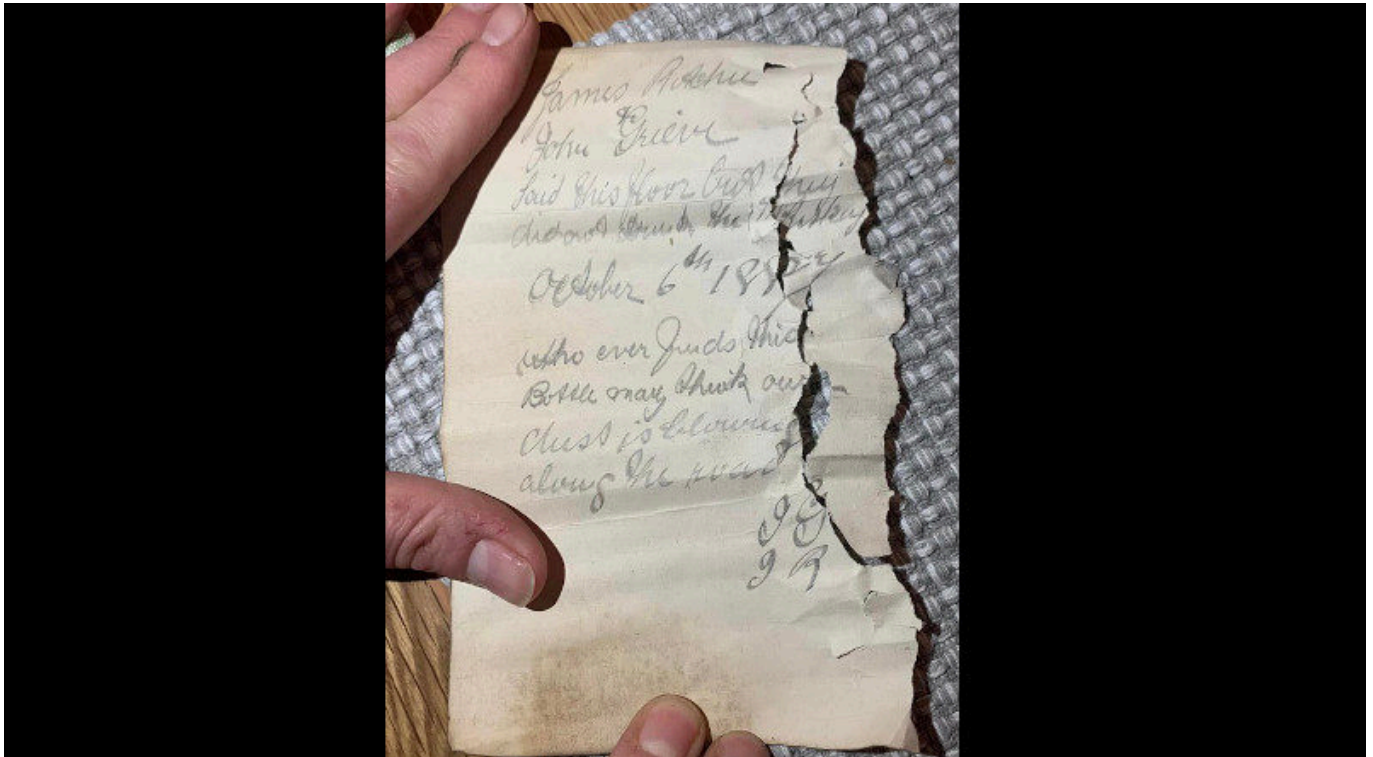 James Ritchie
&
John Grieve
laid this floor but they
did not drink the whisky
October 6th 1887
Who ever finds this
Bottle may think our
dust is blowing
along the road
J G
J R